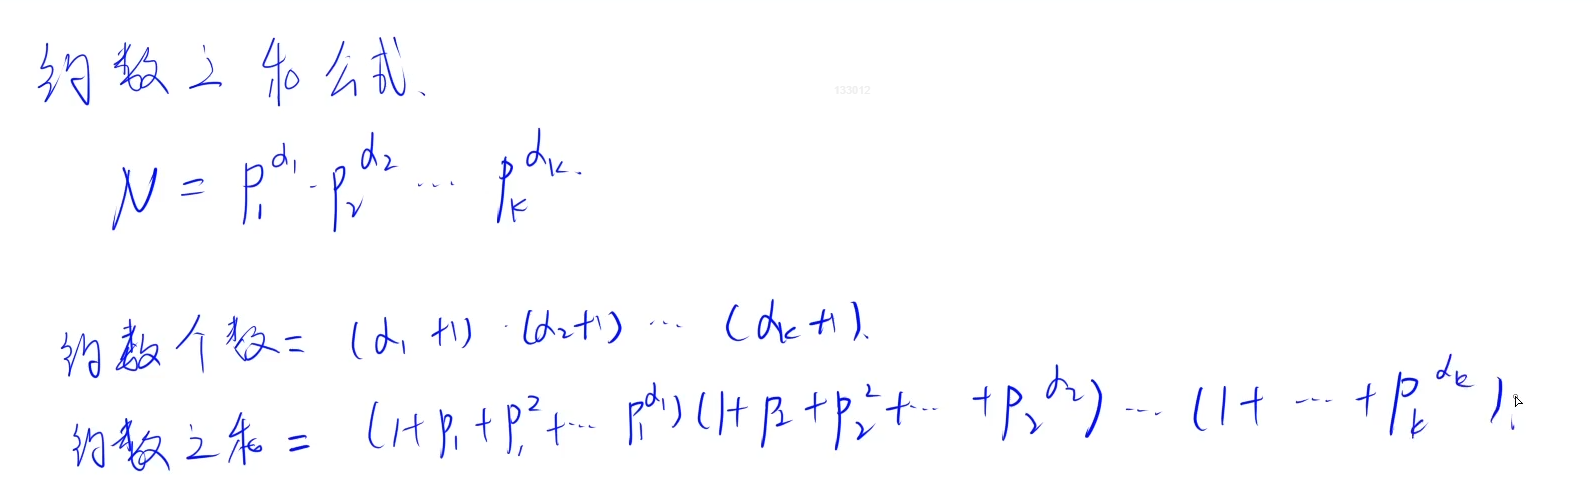 约数之和公式、
133012
N = p₁^α₁ · p₂^α₂ ⋯ pₖ^αₖ.
约数个数 = (α₁+1)·(α₂+1) ⋯ (αₖ+1).
约数之和 = (1+p₁+p₁²+⋯ p₁^α₁)(1+p₂+p₂²+⋯+p₂^α₂) ⋯ (1+ ⋯ +pₖ^αₖ).